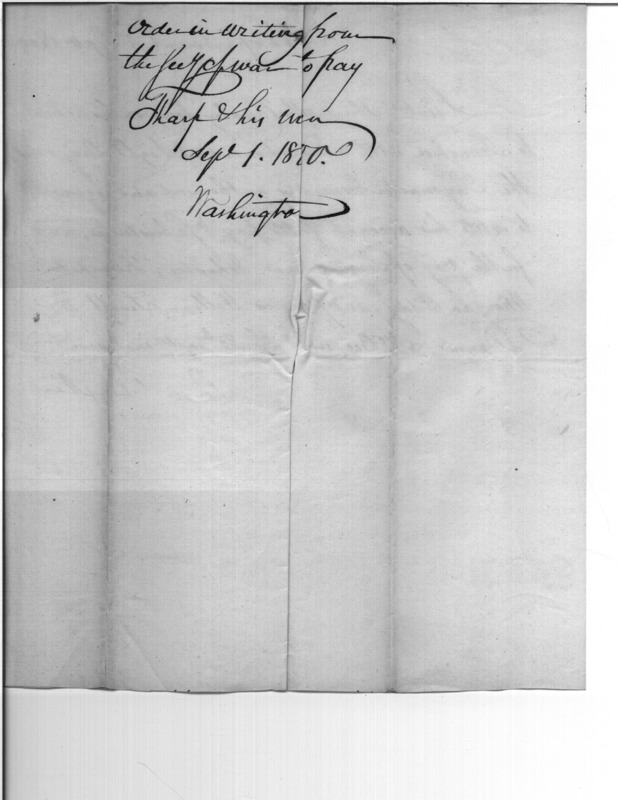 order in writing from
the Secy of war to pay
Tharp & his men
Sept 1. 1870.
Washington